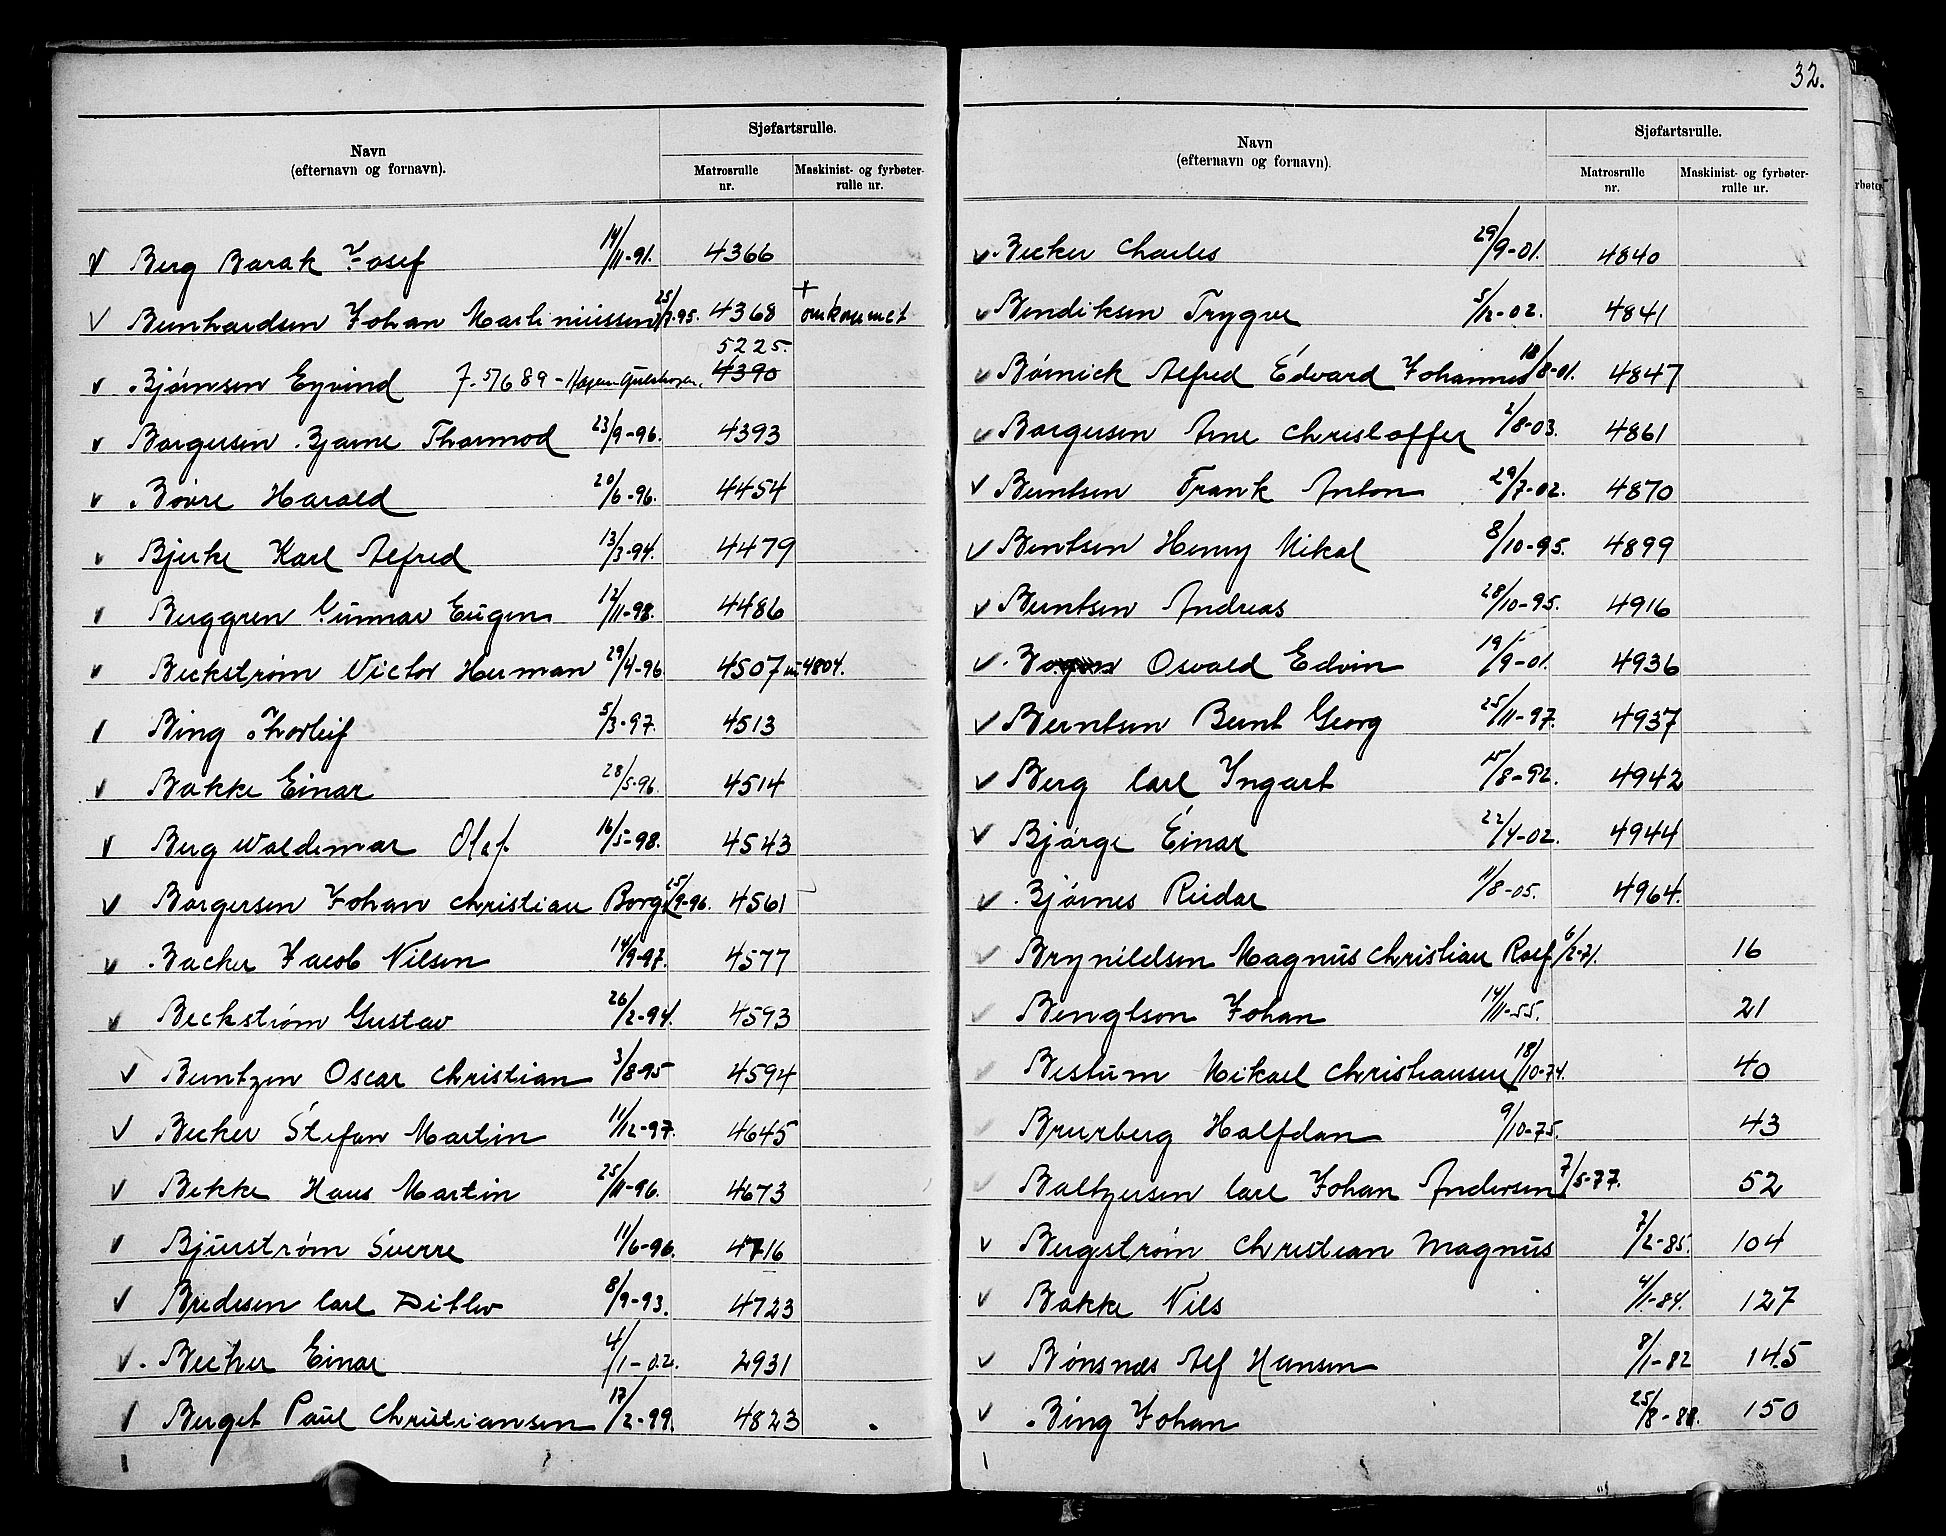 Navn
(efternavn og fornavn).
Sjøfartsrulle.
Matrosrulle nr.
Maskinist- og fyrbøter-rulle nr.
Berg Barak Josef 14/11-91. 4366
Bernhardsen Johan Martiniussen 25/7-95. 4368 + omkommet
5225.
Bjørnsen Eyvind 4390
Borgersen Bjarne Thormod 23/9-96. 4393
Bøvre Harald 20/6-96. 4454
Bjerke Karl Alfred 13/3-94. 4479
Berggren Gunnar Eugen 12/11-98. 4486
Beckstrøm Victor Herman 29/4-96 4507 4804.
Bing Thorleif 5/3-97. 4513
Bakke Einar 28/5-96. 4514
Berg Waldemar Olaf 16/5-98. 4543
Borgersen Johan Christian Borge 25/9-96. 4561
Backer Jacob Nilsen 14/9-97. 4577
Beckstrøm Gustav 26/2-94. 4593
Berntzen Oscar Christian 3/8-95 4594
Becker Stefan Martin 11/12-97. 4645
Bekke Hans Martin 25/11-96. 4673
Bjurstrøm Sverre 11/6-96. 4716
Bredesen Carl Ditlev 8/9-93. 4723
Becker Einar 4/1-02. 2931
Berget Paul Christiansen 17/2-99. 4823
32.
Navn
(efternavn og fornavn).
Sjøfartsrulle.
Matrosrulle nr.
Maskinist- og fyrbøter-rulle nr.
Becker Charles 29/9-01. 4840
Bendiksen Trygve 5/12-02. 4841
Børnick Alfred Edvard Johannes 18/8-01. 4847
Borgersen Arne Christoffer 2/8-03. 4861
Berntsen Frank Anton 29/7-02. 4870
Berntsen Henry Mikal 8/10-95. 4899
Berntsen Andreas 28/10-95. 4916
Osvald Edvin 19/9-01. 4936
Berntsen Bernt Georg 25/11-97. 4937
Berg Carl Ingart 15/8-92. 4942
Bjørge Einar 22/4-02. 4944
Bjørnes Reidar 11/8-05. 4964.
Brynildsen Magnus Christian Rolf 6/2-71. 16
Bengtson Johan 14/11-55. 21
Bestum Mikael Christiansen 18/10-74. 40
Brurberg Halfdan 9/10-75. 43
Baltzersen Carl Johan Andersen 7/5-77. 52
Bergstrøm Christian Magnus 7/2-85. 104
Bakke Nils 4/11-84. 127
Bønsnæs Alf Hansen 8/1-82 145
Bing Johan 25/8-88. 150